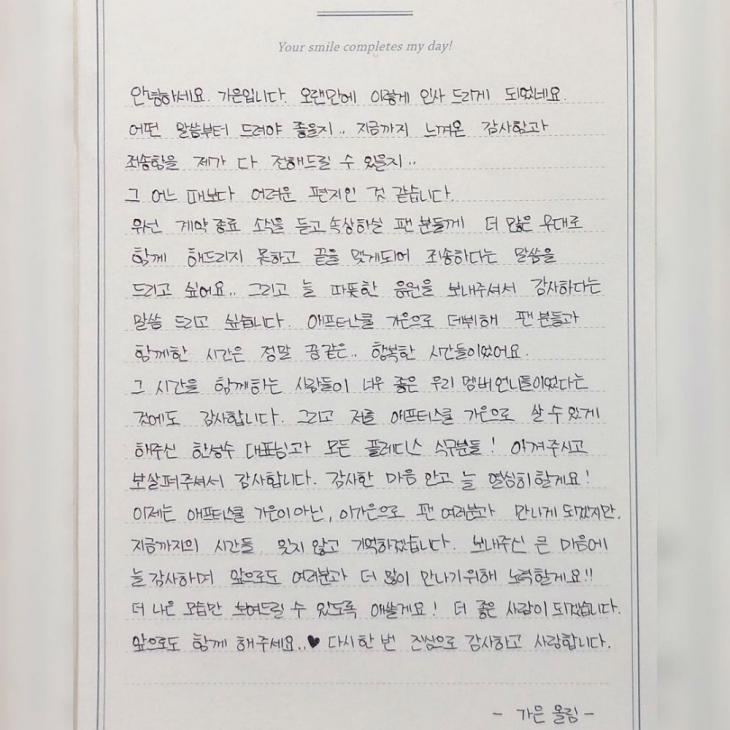 Your smile completes my day!
안녕하세요. 가은입니다. 오랜만에 이렇게 인사 드리게 되었네요.
어떤 말씀부터 드려야 좋을지.. 지금까지 느껴온 감사함과
죄송함을 제가 다 전해드릴 수 있을지..
그 어느 때보다 어려운 편지인 것 같습니다.
우선 계약 종료 소식을 듣고 속상하실 팬 분들께 더 많은 무대로
함께 해드리지 못하고 끝을 맺게되어 죄송하다는 말씀을
드리고 싶어요.. 그리고 늘 따뜻한 응원을 보내주셔서 감사하다는
말씀 드리고 싶습니다. 애프터스쿨 가은으로 데뷔해 팬 분들과
함께한 시간은 정말 꿈같은.. 행복한 시간들이었어요.
그 시간을 함께하는 사람들이 너무 좋은 우리 멤버 언니들이었다는
것에도 감사합니다. 그리고 저를 애프터스쿨 가은으로 살 수 있게
해주신 한성수 대표님과 모든 플레디스 식구분들! 아껴주시고
보살펴주셔서 감사합니다. 감사한 마음 안고 늘 열심히 할게요!
이제는 애프터스쿨 가은이 아닌, 이가은으로 팬 여러분과 만나게 되겠지만,
지금까지의 시간들 잊지 않고 기억하겠습니다. 보내주신 큰 마음에
늘 감사하며 앞으로도 여러분과 더 많이 만나기 위해 노력할게요!!
더 나은 모습만 보여드릴 수 있도록 애쓸게요! 더 좋은 사람이 되겠습니다.
앞으로도 함께 해주세요..♥ 다시 한 번 진심으로 감사하고 사랑합니다.
- 가은 올림 -